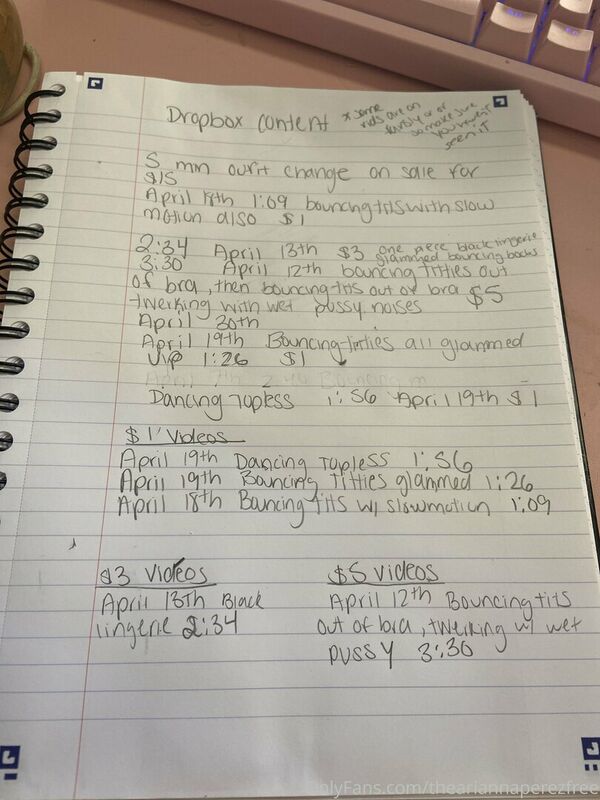 Dropbox content * some
vids are on
so make sure
you haven't
seen it
5 min outfit change on sale for
$15
April 18th 1:09 bouncing tits with slow
motion also $1
2:34 April 13th $3 one piece black lingerie
glammed bouncing boobs
3:30 April 12th bouncing titties out
of bra, then bouncing tits out of bra $5
twerking with wet pussy noises
April 30th
April 19th Bouncing titties all glammed
Vip 1:26 $1
Dancing Topless 1:56 April 19th $1
$1 Videos
April 19th Dancing Topless 1:56
April 19th Bouncing Titties glammed 1:26
April 18th Bouncing tits w/ slowmotion 1:09
$3 Videos
April 13Th Black
lingerie 2:34
$5 videos
April 12th Bouncing tits
out of bra, twerking w/ wet
pussy 3:30
OnlyFans.com/theariannaperezfree